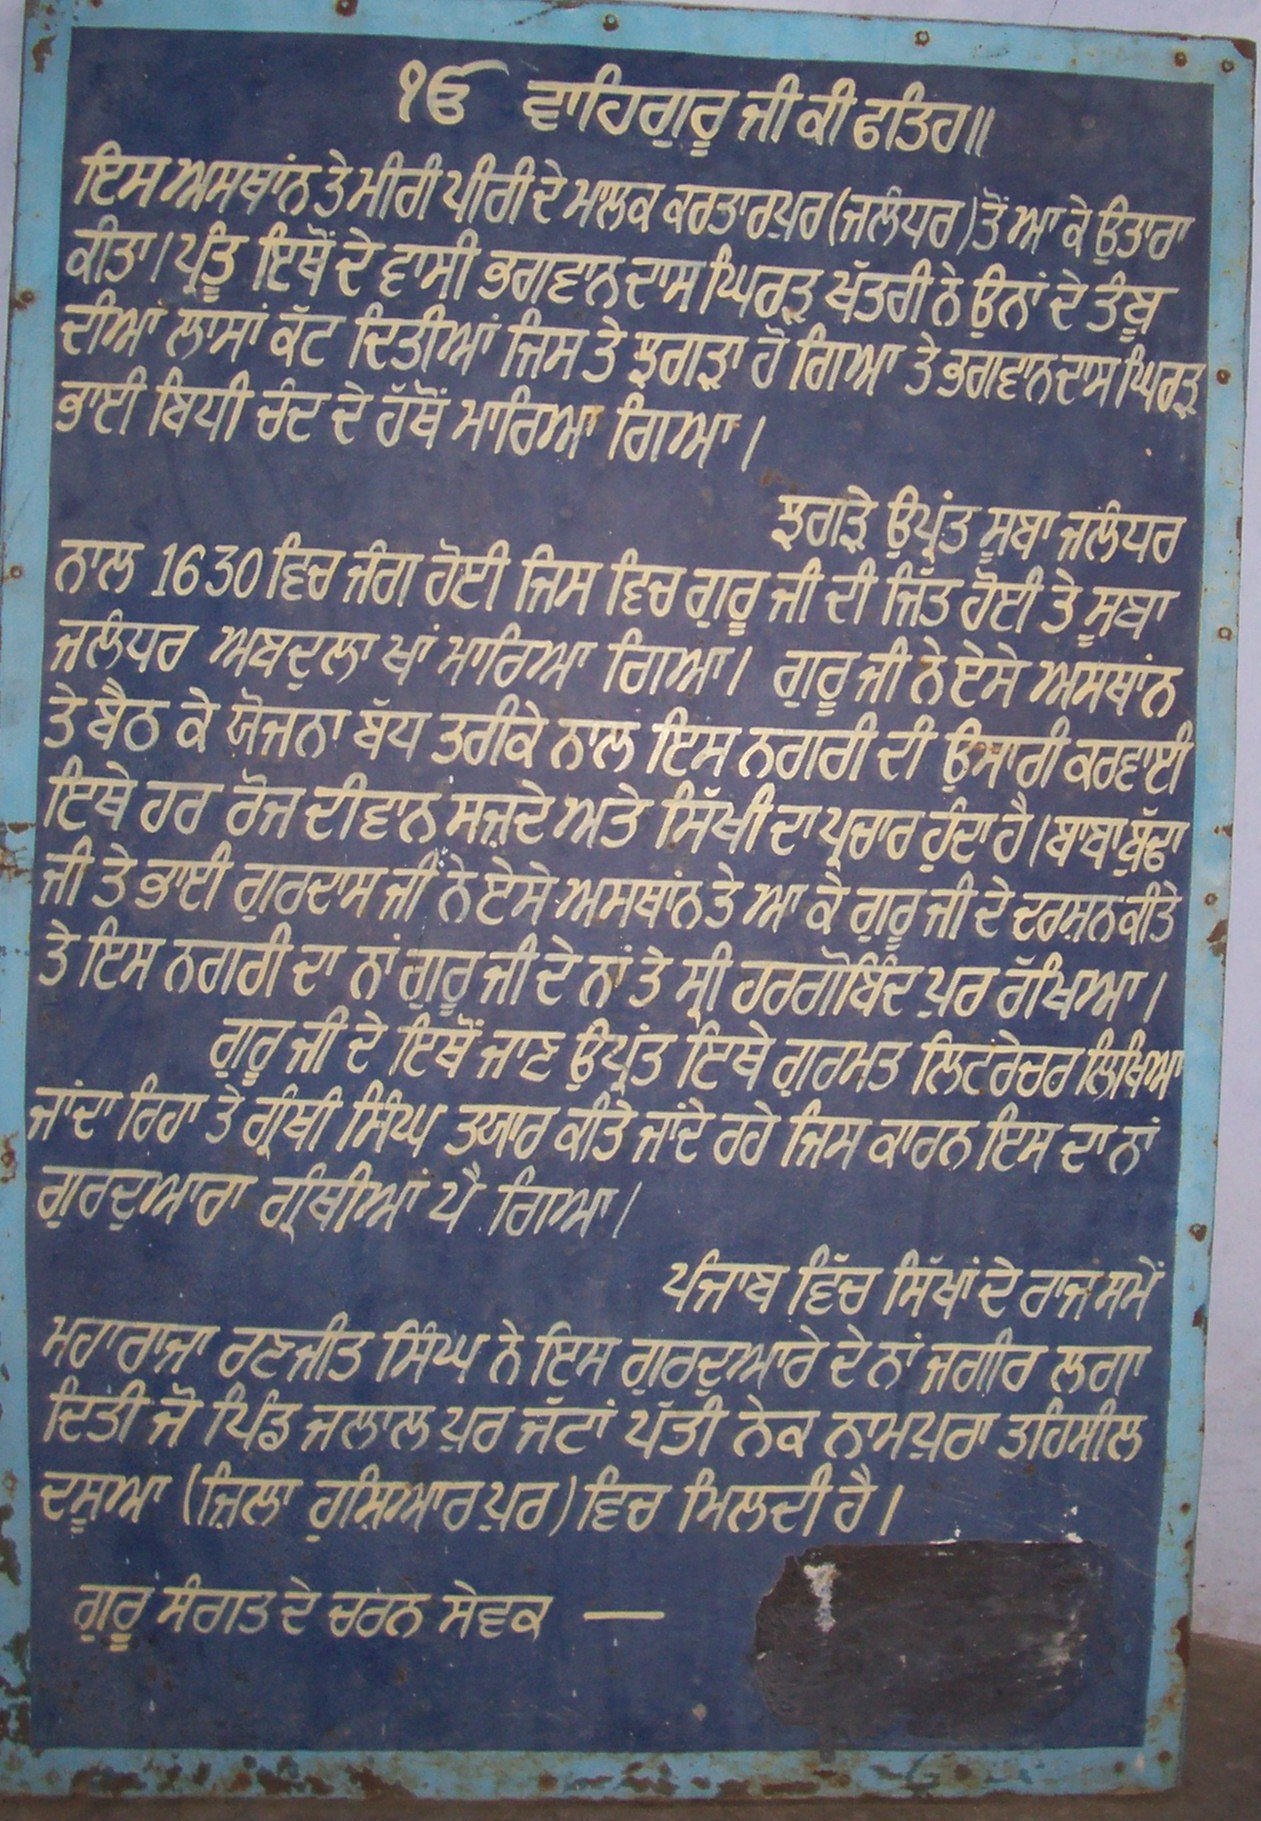 ੴ ਵਾਹਿਗੁਰੂ ਜੀ ਕੀ ਫਤਿਹ॥
ਇਸ ਅਸਥਾਂਨ ਤੇ ਮੀਰੀ ਪੀਰੀ ਦੇ ਮਾਲਕ ਕਰਤਾਰਪੁਰ (ਜਲੰਧਰ) ਤੋਂ ਆ ਕੇ ਉਤਾਰਾ
ਕੀਤਾ। ਪ੍ਰੰਤੂ ਇਥੋਂ ਦੇ ਵਾਸੀ ਭਗਵਾਨ ਦਾਸ ਘਿਰੜ ਖੱਤਰੀ ਨੇ ਉਨਾਂ ਦੇ ਤੰਬੂ
ਦੀਆਂ ਲਾਸਾਂ ਕੱਟ ਦਿਤੀਆਂ ਜਿਸ ਤੇ ਝਗੜਾ ਹੋ ਗਿਆ ਤੇ ਭਗਵਾਨ ਦਾਸ ਘਿਰੜ
ਭਾਈ ਬਿਧੀ ਚੰਦ ਦੇ ਹੱਥੋਂ ਮਾਰਿਆ ਗਿਆ।
ਝਗੜੇ ਉਪ੍ਰੰਤ ਸੂਬਾ ਜਲੰਧਰ
ਨਾਲ 1630 ਵਿਚ ਜੰਗ ਹੋਈ ਜਿਸ ਵਿਚ ਗੁਰੂ ਜੀ ਦੀ ਜਿੱਤ ਹੋਈ ਤੇ ਸੂਬਾ
ਜਲੰਧਰ ਅਬਦੁਲਾ ਖਾਂ ਮਾਰਿਆ ਗਿਆ। ਗੁਰੂ ਜੀ ਨੇ ਏਸੇ ਅਸਥਾਂਨ
ਤੇ ਬੈਠ ਕੇ ਯੋਜਨਾ ਬੱਧ ਤਰੀਕੇ ਨਾਲ ਇਸ ਨਗਰੀ ਦੀ ਉਸਾਰੀ ਕਰਵਾਈ
ਇਥੇ ਹਰ ਰੋਜ ਦੀਵਾਨ ਸਜ਼ਦੇ ਅਤੇ ਸਿੱਖੀ ਦਾ ਪ੍ਰਚਾਰ ਹੁੰਦਾ ਹੈ। ਬਾਬਾ ਬੁੱਢਾ
ਜੀ ਤੇ ਭਾਈ ਗੁਰਦਾਸ ਜੀ ਨੇ ਏਸੇ ਅਸਥਾਂਨ ਤੇ ਆ ਕੇ ਗੁਰੂ ਜੀ ਦੇ ਦਰਸ਼ਨ ਕੀਤੇ
ਤੇ ਇਸ ਨਗਰੀ ਦਾ ਨਾਂ ਗੁਰੂ ਜੀ ਦੇ ਨਾਂ ਤੇ ਸ੍ਰੀ ਹਰਗੋਬਿੰਦ ਪੁਰ ਰੱਖਿਆ।
ਗੁਰੂ ਜੀ ਦੇ ਇਥੋਂ ਜਾਣ ਉਪ੍ਰੰਤ ਇਥੇ ਗੁਰਮਤ ਲਿਟਰੇਚਰ ਲਿਖਿਆ
ਜਾਂਦਾ ਰਿਹਾ ਤੇ ਗ੍ਰੰਥੀ ਸਿੰਘ ਤਯਾਰ ਕੀਤੇ ਜਾਂਦੇ ਰਹੇ ਜਿਸ ਕਾਰਨ ਇਸ ਦਾ ਨਾਂ
ਗੁਰਦੁਆਰਾ ਗ੍ਰੰਥੀਆਂ ਪੈ ਗਿਆ।
ਪੰਜਾਬ ਵਿੱਚ ਸਿੱਖਾਂ ਦੇ ਰਾਜ ਸਮੇਂ
ਮਹਾਰਾਜਾ ਰਣਜੀਤ ਸਿੰਘ ਨੇ ਇਸ ਗੁਰਦੁਆਰੇ ਦੇ ਨਾਂ ਜਗੀਰ ਲਗਾ
ਦਿਤੀ ਜੋ ਪਿੰਡ ਜਲਾਲ ਪੁਰ ਜੱਟਾਂ ਪੱਤੀ ਨੇਕ ਨਾਮਪੁਰਾ ਤਹਿਸੀਲ
ਦਸੂਆ (ਜ਼ਿਲਾ ਹੁਸ਼ਿਆਰ ਪੁਰ) ਵਿਚ ਮਿਲਦੀ ਹੈ।
ਗੁਰੂ ਸੰਗਤ ਦੇ ਚਰਨ ਸੇਵਕ —